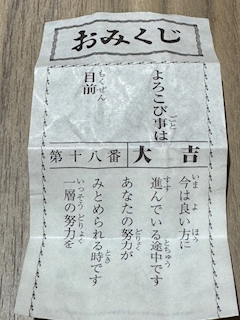 おみくじ
よろこび事は
目前
第十八番
大吉
今は良い方に
進んでいる途中です
あなたの努力が
みとめられる時です
一層の努力を